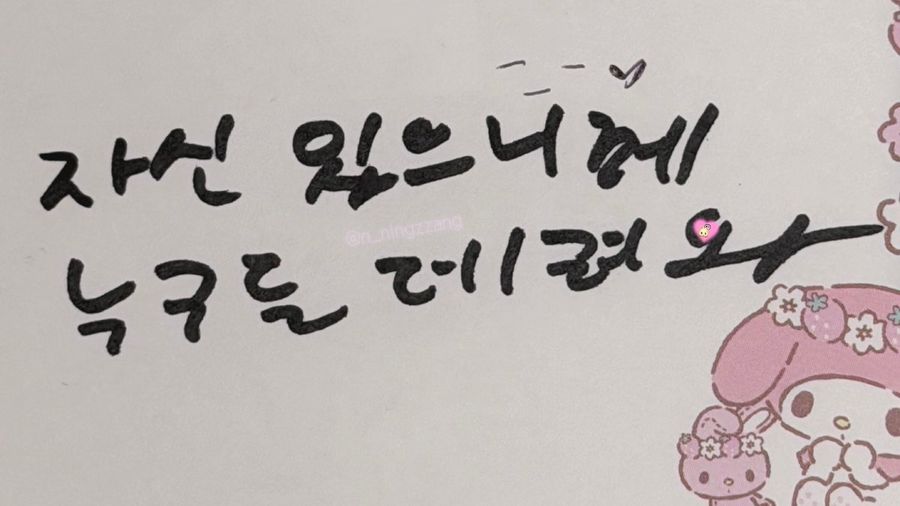 자신 있으니께
@n_ningzzang
누구든 데려 와